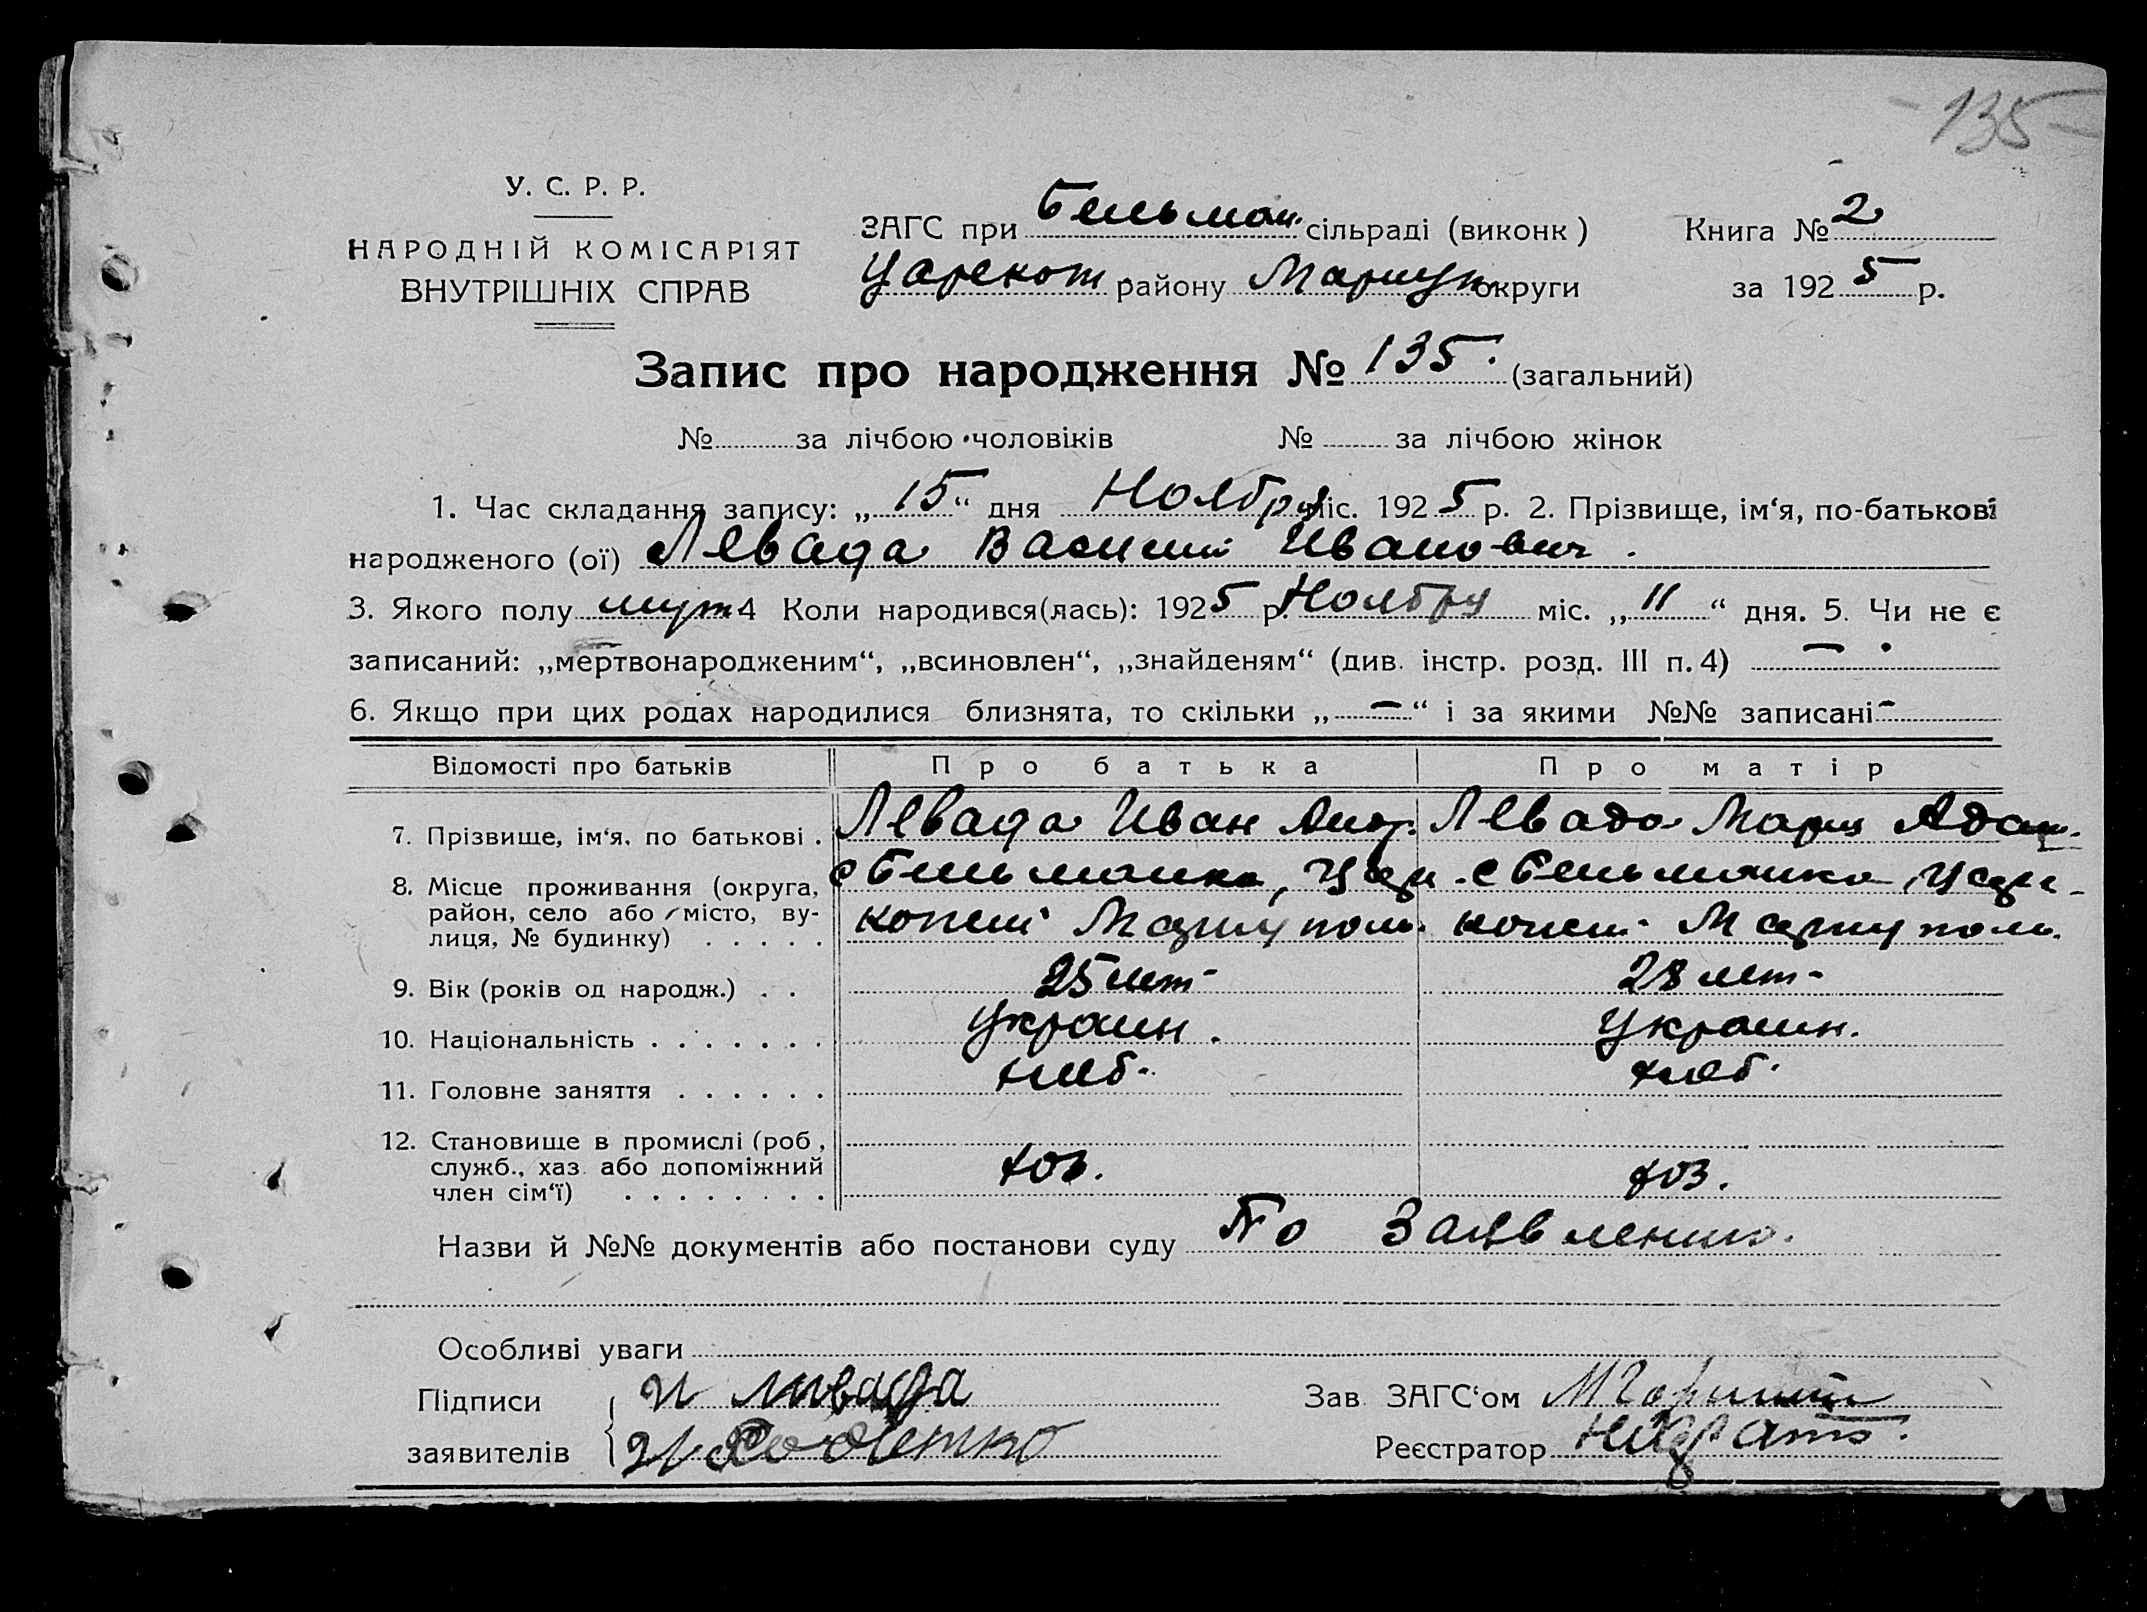 135
У. С. Р. Р.
НАРОДНІЙ КОМІСАРІЯТ
ВНУТРІШНІХ СПРАВ
ЗАГС при Бельман. сільраді (виконк ) Книга № 2
Царекот району Мариуп. округи за 192 5 р.
Запис про народження № 135. (загальний)
№ за лічбою чоловіків № за лічбою жінок
1. Час складання запису: „ 15 “ дня Ноября міс. 192 5 р. 2. Прізвище, ім‘я, по-батькові
народженого (ої) Левада Василий Иванович.
3. Якого полу муж 4 Коли народився(лась): 192 5 р. Ноября міс. „ 11 “ дня. 5. Чи не є
записаний: „мертвонародженим“, „всиновлен“, „знайденям“ (див. інстр. розд. III п. 4) —
6. Якщо при цих родах народилися близнята, то скільки „ — “ і за якими №№ записані -
Відомості про батьків Про батька Про матір
7. Прізвище, ім‘я, по батькові . Левада Иван Левада Мария Адам.
8. Місце проживання (округа, с Бельманка, Царе с Бельманка, Царе-
район, село або місто, ву-
лиця, № будинку) . . . . . конст Мариупол. конст Мариупол.
9. Вік (років од народж.) . . 25 лет 28 лет
10. Національність . . . . . . . Украин. Украин.
11. Головне заняття . . . . . . хлеб. хлеб.
12. Становище в промислі (роб ,
служб., хаз. або допоміжний хоз. хоз.
член сім‘ї) . . . . . . . .
Назви й №№ документів або постанови суду По Заявлению.
Особливі уваги
Підписи ИЛивада Зав. ЗАГС‘ом
заявителів И Реєстратор